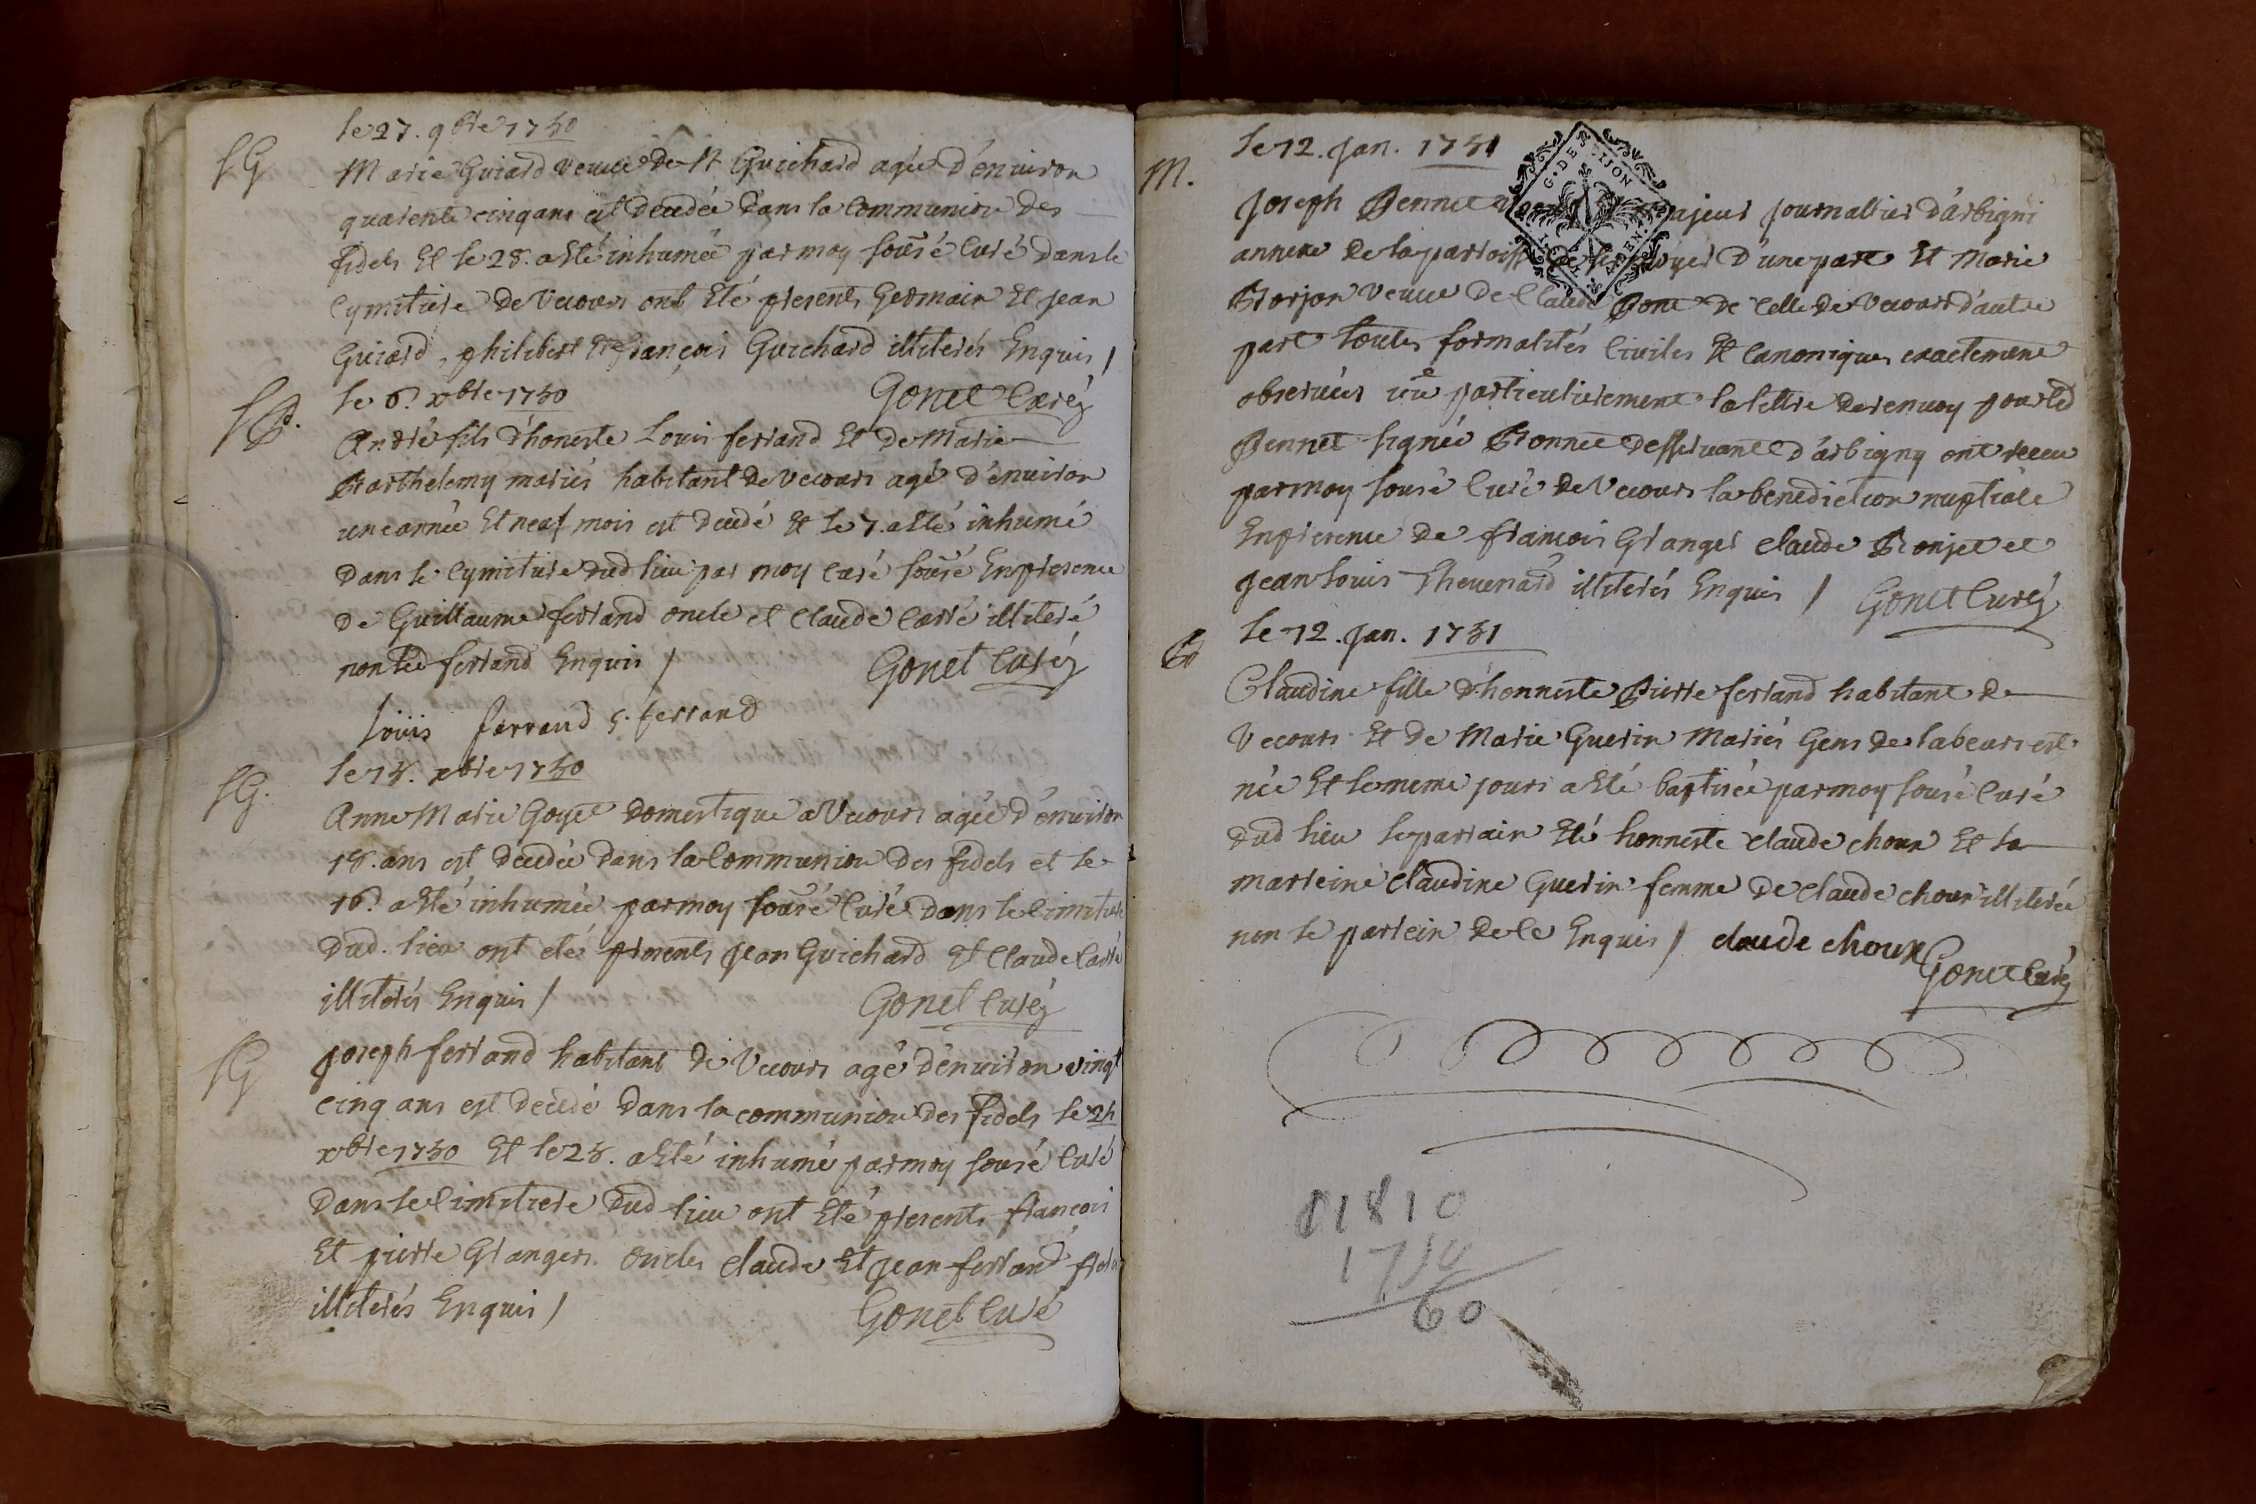 le 27. 9bre 1750
SG
Marie Guiard veuve de Guichard agée d'environ
quarente cinq ans est decedée dans la Communion des
fidels Et le 28. a Eté inhumée par moy sousé Curé dans le
Cymitiere de Vecours ont Eté presents Germain Et jean
Guiard, philibert Et françois Guichard illiterés Enquis /
Gonet Curé
le 6. xbre 1750
SP.
André fils d'honeste Louis ferrand Et de Marie
Barthelemy mariés habitant de Vecours agé d'environ
une année Et neuf mois est decedé Et le 7. a Eté inhumé
dans le Cymitiere dud lieu par moy Curé sousé En presence
de Guillaume ferrand oncle et Claude Carré illiteré
non led ferrand Enquis /
Gonet Curé
Louis ferrand g. ferrand
le 15. xbre 1750
SG.
Anne Marie Goyet domestique a Vecours agée d'environ
18. ans est decedée dans la Communion des fidels et le
16. a Eté inhumée par moy sousé Curé dans le Cimitiere
dud. lieu ont eté presents jean Guichard Et Claude Carré
illiterés Enquis /
Gonet Curé
SG
joseph ferrand habitant de Vecours agé d'environ vingt
cinq ans est decedé dans la communion des fidels le 24
xbre 1750 Et le 25. a Eté inhumé par moy sousé Curé
dans le Cimitiere dud lieu ont Eté presents françois
Et pierre Grangers. oncles claude Et jean ferrand
illiterés Enquis /
Gonet Curé
le 12. jan. 1751
M.
joseph Pennet majeur journallier d'arbigni
annexe de la parroisse de d'une part Et Marie
Borjon veuve de Claude Pont de Celle de Vecours d'autre
part toutes formalités Civiles Et Canoniques exactement
observées particulierement la lettre de renvoy pour led
Pennet signée Bonnet desservant d'arbigny ont receu
par moy sousé Curé de Vecours la benediction nuptiale
En presence de francois Granger claude Bonjet et
jean Louis Thevenard illiterés Enquis /
Gonet Curé
le 12. jan. 1751
B
Claudine fille d'honneste Pierre ferrand habitant de
Vecours Et de Marie Guerin Mariés Gens de labeurs est
née Et le meme jours a Eté baptisée par moy sousé Curé
dud lieu le parrain Eté honneste claude choux Et la
marreine claudine Guerin femme de claude choux illiterée
non le parrein de ce Enquis / claude choux
Gonet Curé
1810
1750
60